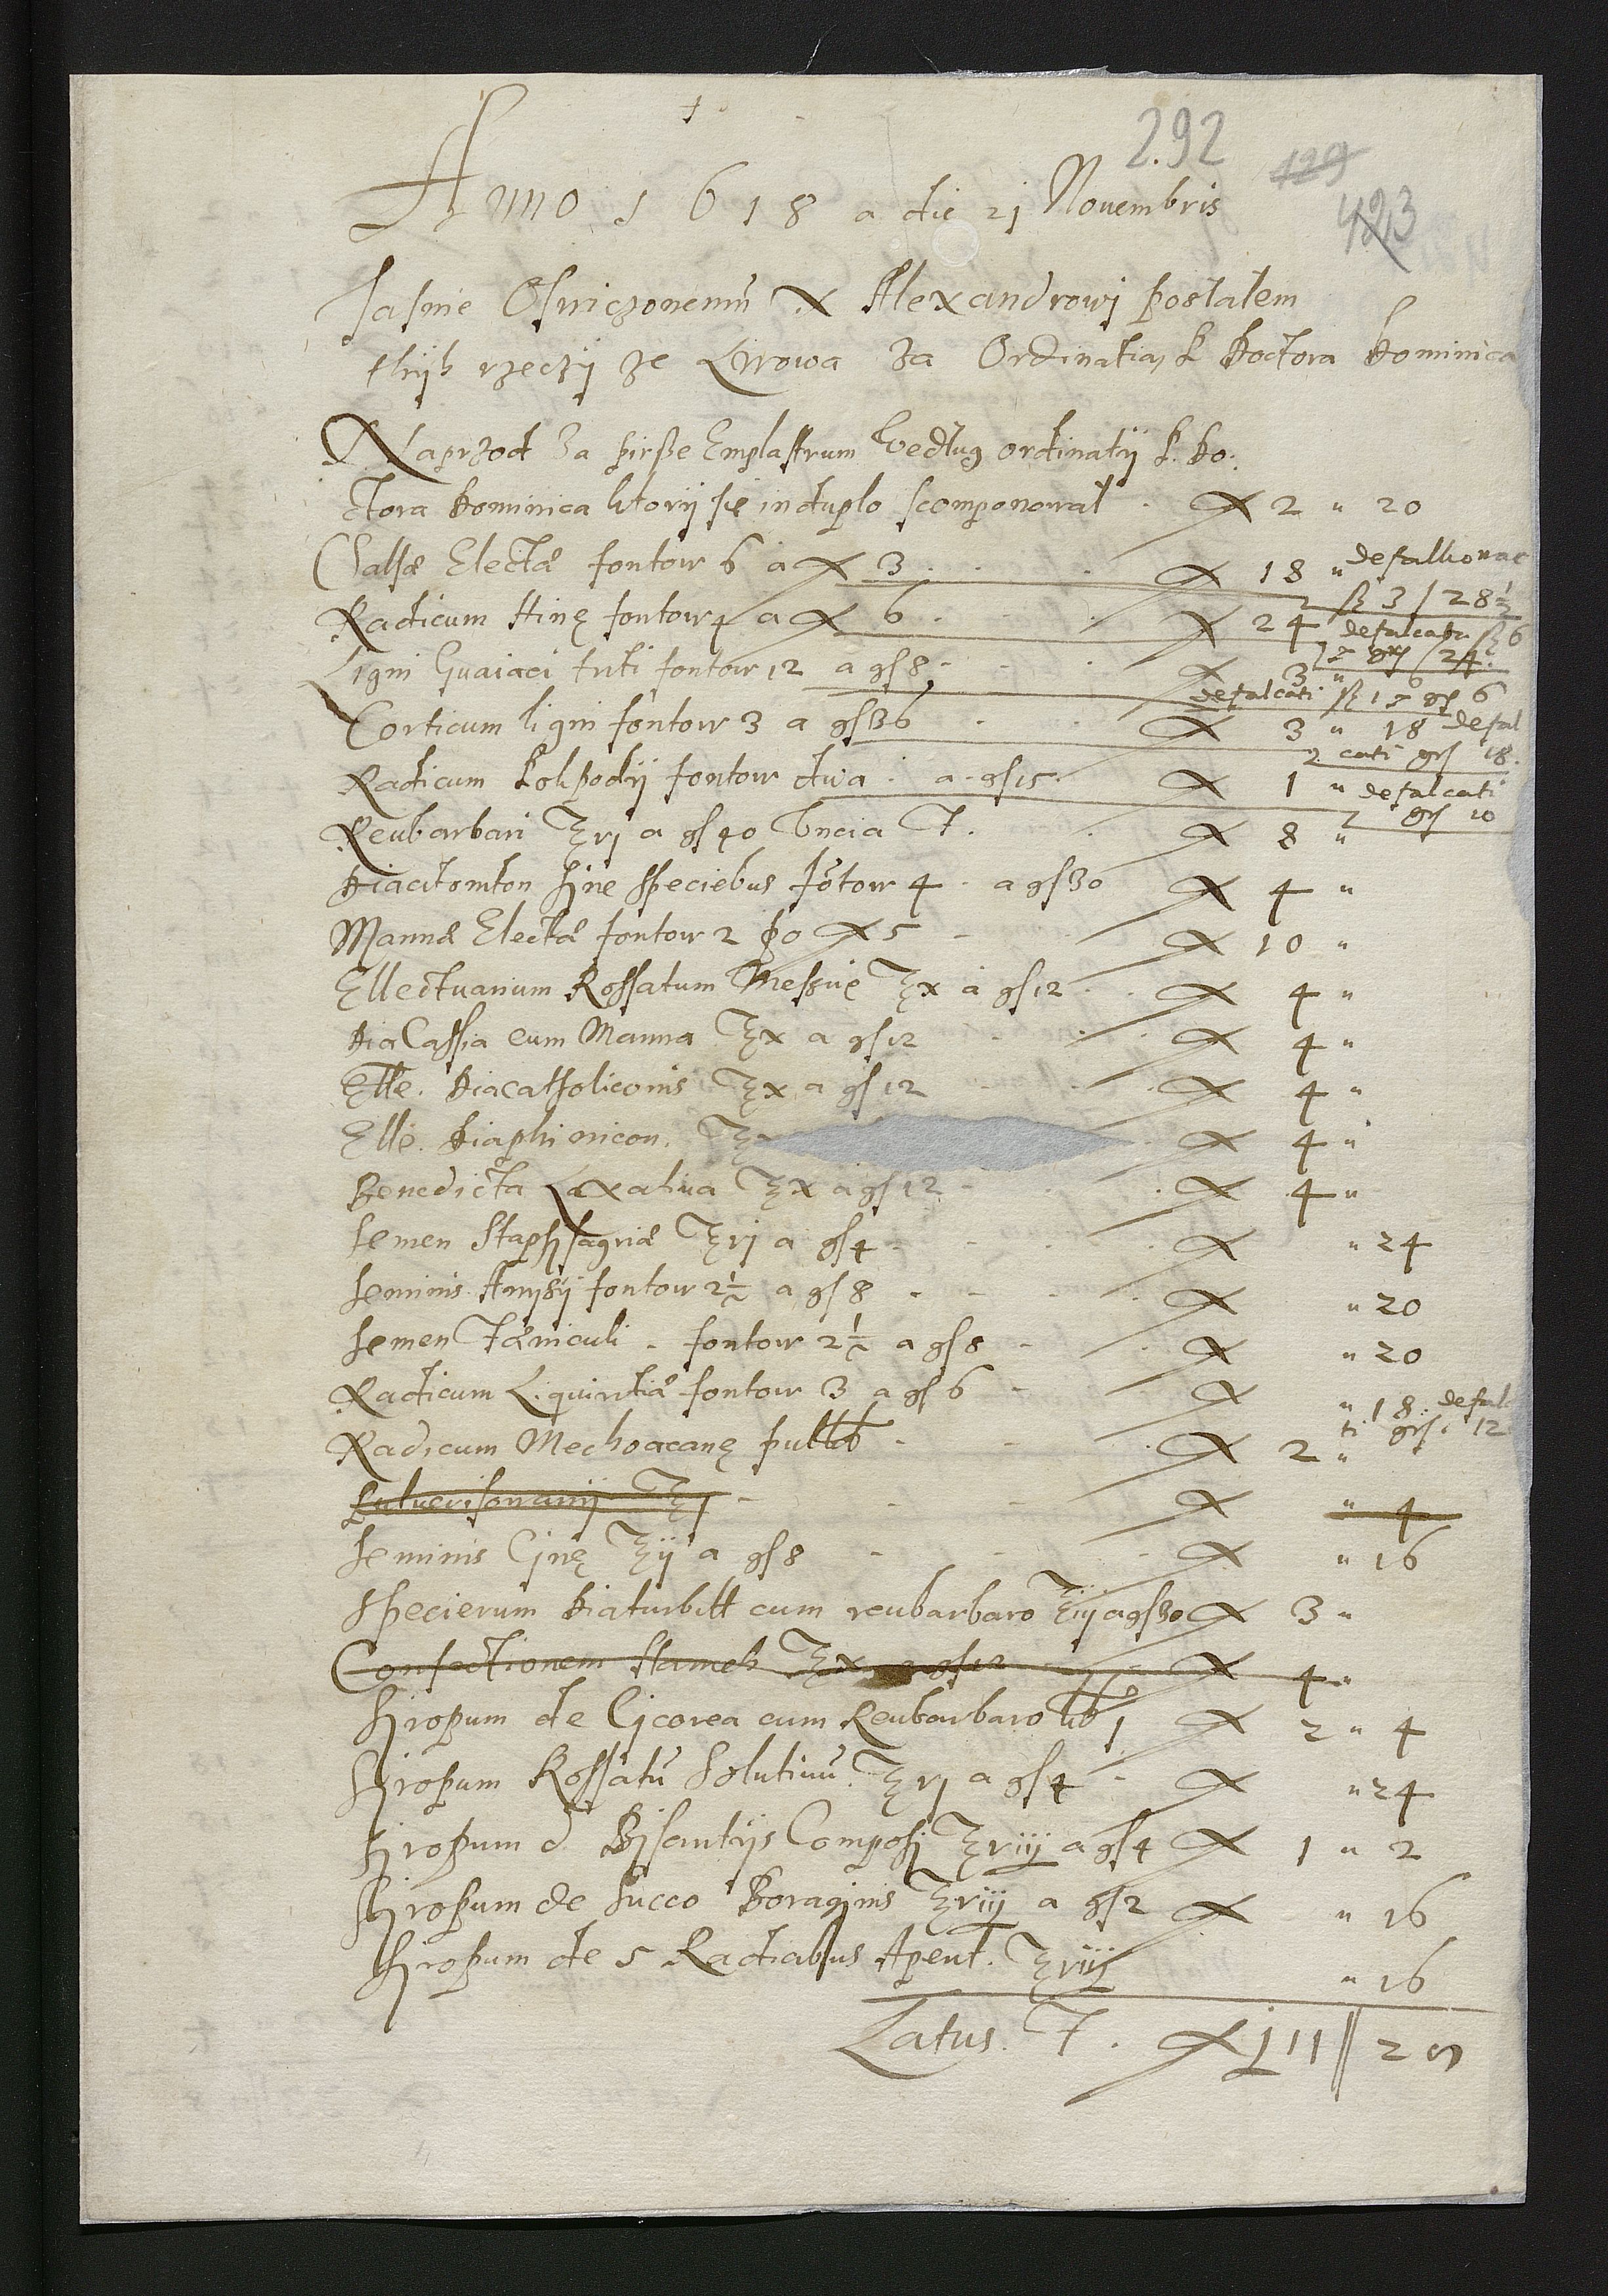 292
129
423
Anno 1618 a die 21 Nouembris
Jasnie Osniczonemu X Alexandrowj posłałem
thych rzeczÿ ze Lwowa za Ordinatią P Doctora Dominica
Naprzod za pirsze Emplastrum wedlug ordinatÿ P. Do:
ctora Dominica ktorÿ sie in duplo scomponował fl 2 " 20
Cassiæ Electæ fontow 6 a fl 3 fl 18 "
Radicum Hinę fontow 4 a fl 6 fl 24
defalcati
Ligni Guaiaci tuti fontow 12 a gs 8 fl 3 " 6
defalcati
Corticum ligni fontow 3 a gs 36 fl 3 " 18 defal
cati grs 18.
Radicum Polipodÿ fontow dwa a gs 15 fl 1 " defalcati
grs 10
Reubarbari ℥vj a gs 40 vncia 1. fl 8 "
Diacitomton sine speciebus fōtow 4 a gs 30 fl 4 "
Mannæ Electæ fontow 2 po fl 5 fl 10 "
Ellectuarium Rossatum Messuę ℥x a gs 12 fl 4 "
Dia Cassia cum Manna ℥x a gs 12 fl 4 "
Elle. Diacatholiconis ℥x a gs 12 fl 4 "
Elle. Diaphinicon. ℥x fl 4 "
Benedicta Laxatiua ℥x a gs 12 fl 4 "
Semen Staphisagriæ ℥vj a gs 4 fl " 24
Seminis Anysÿ fontow 2½ a gs 8 fl " 20
Semen Fœniculi fontow 2½ a gs 8 fl " 20
Radicum Liquiritiæ fontow 3 a gs 6 fl " 18 defal
ti grs. 12
Radicum Mechoacanę pul lb fl 2 "
℥j fl " 4
Seminis Cinę ℥ij a gs 8 fl " 16
Specierum Diaturbitt cum reubarbaro ℥iij a gs 30 fl 3 "
Confectionem Hamech ℥x a gs 12 fl 4 "
Siropum de Cicorea cum Reubarbaro lib j fl 2 " 4
Siropum Rossatū Solutiuū ℥vj a gs 4 fl " 24
Siropum d Bisantÿs Composi ℥viij a gs 4 fl 1 " 2
Siropum de Succo Boraginis ℥viij a gs 2 fl " 16
Siropum de 5 Radicabus Aperit. ℥viij " 16
Latus. 1. fl 111 || 25